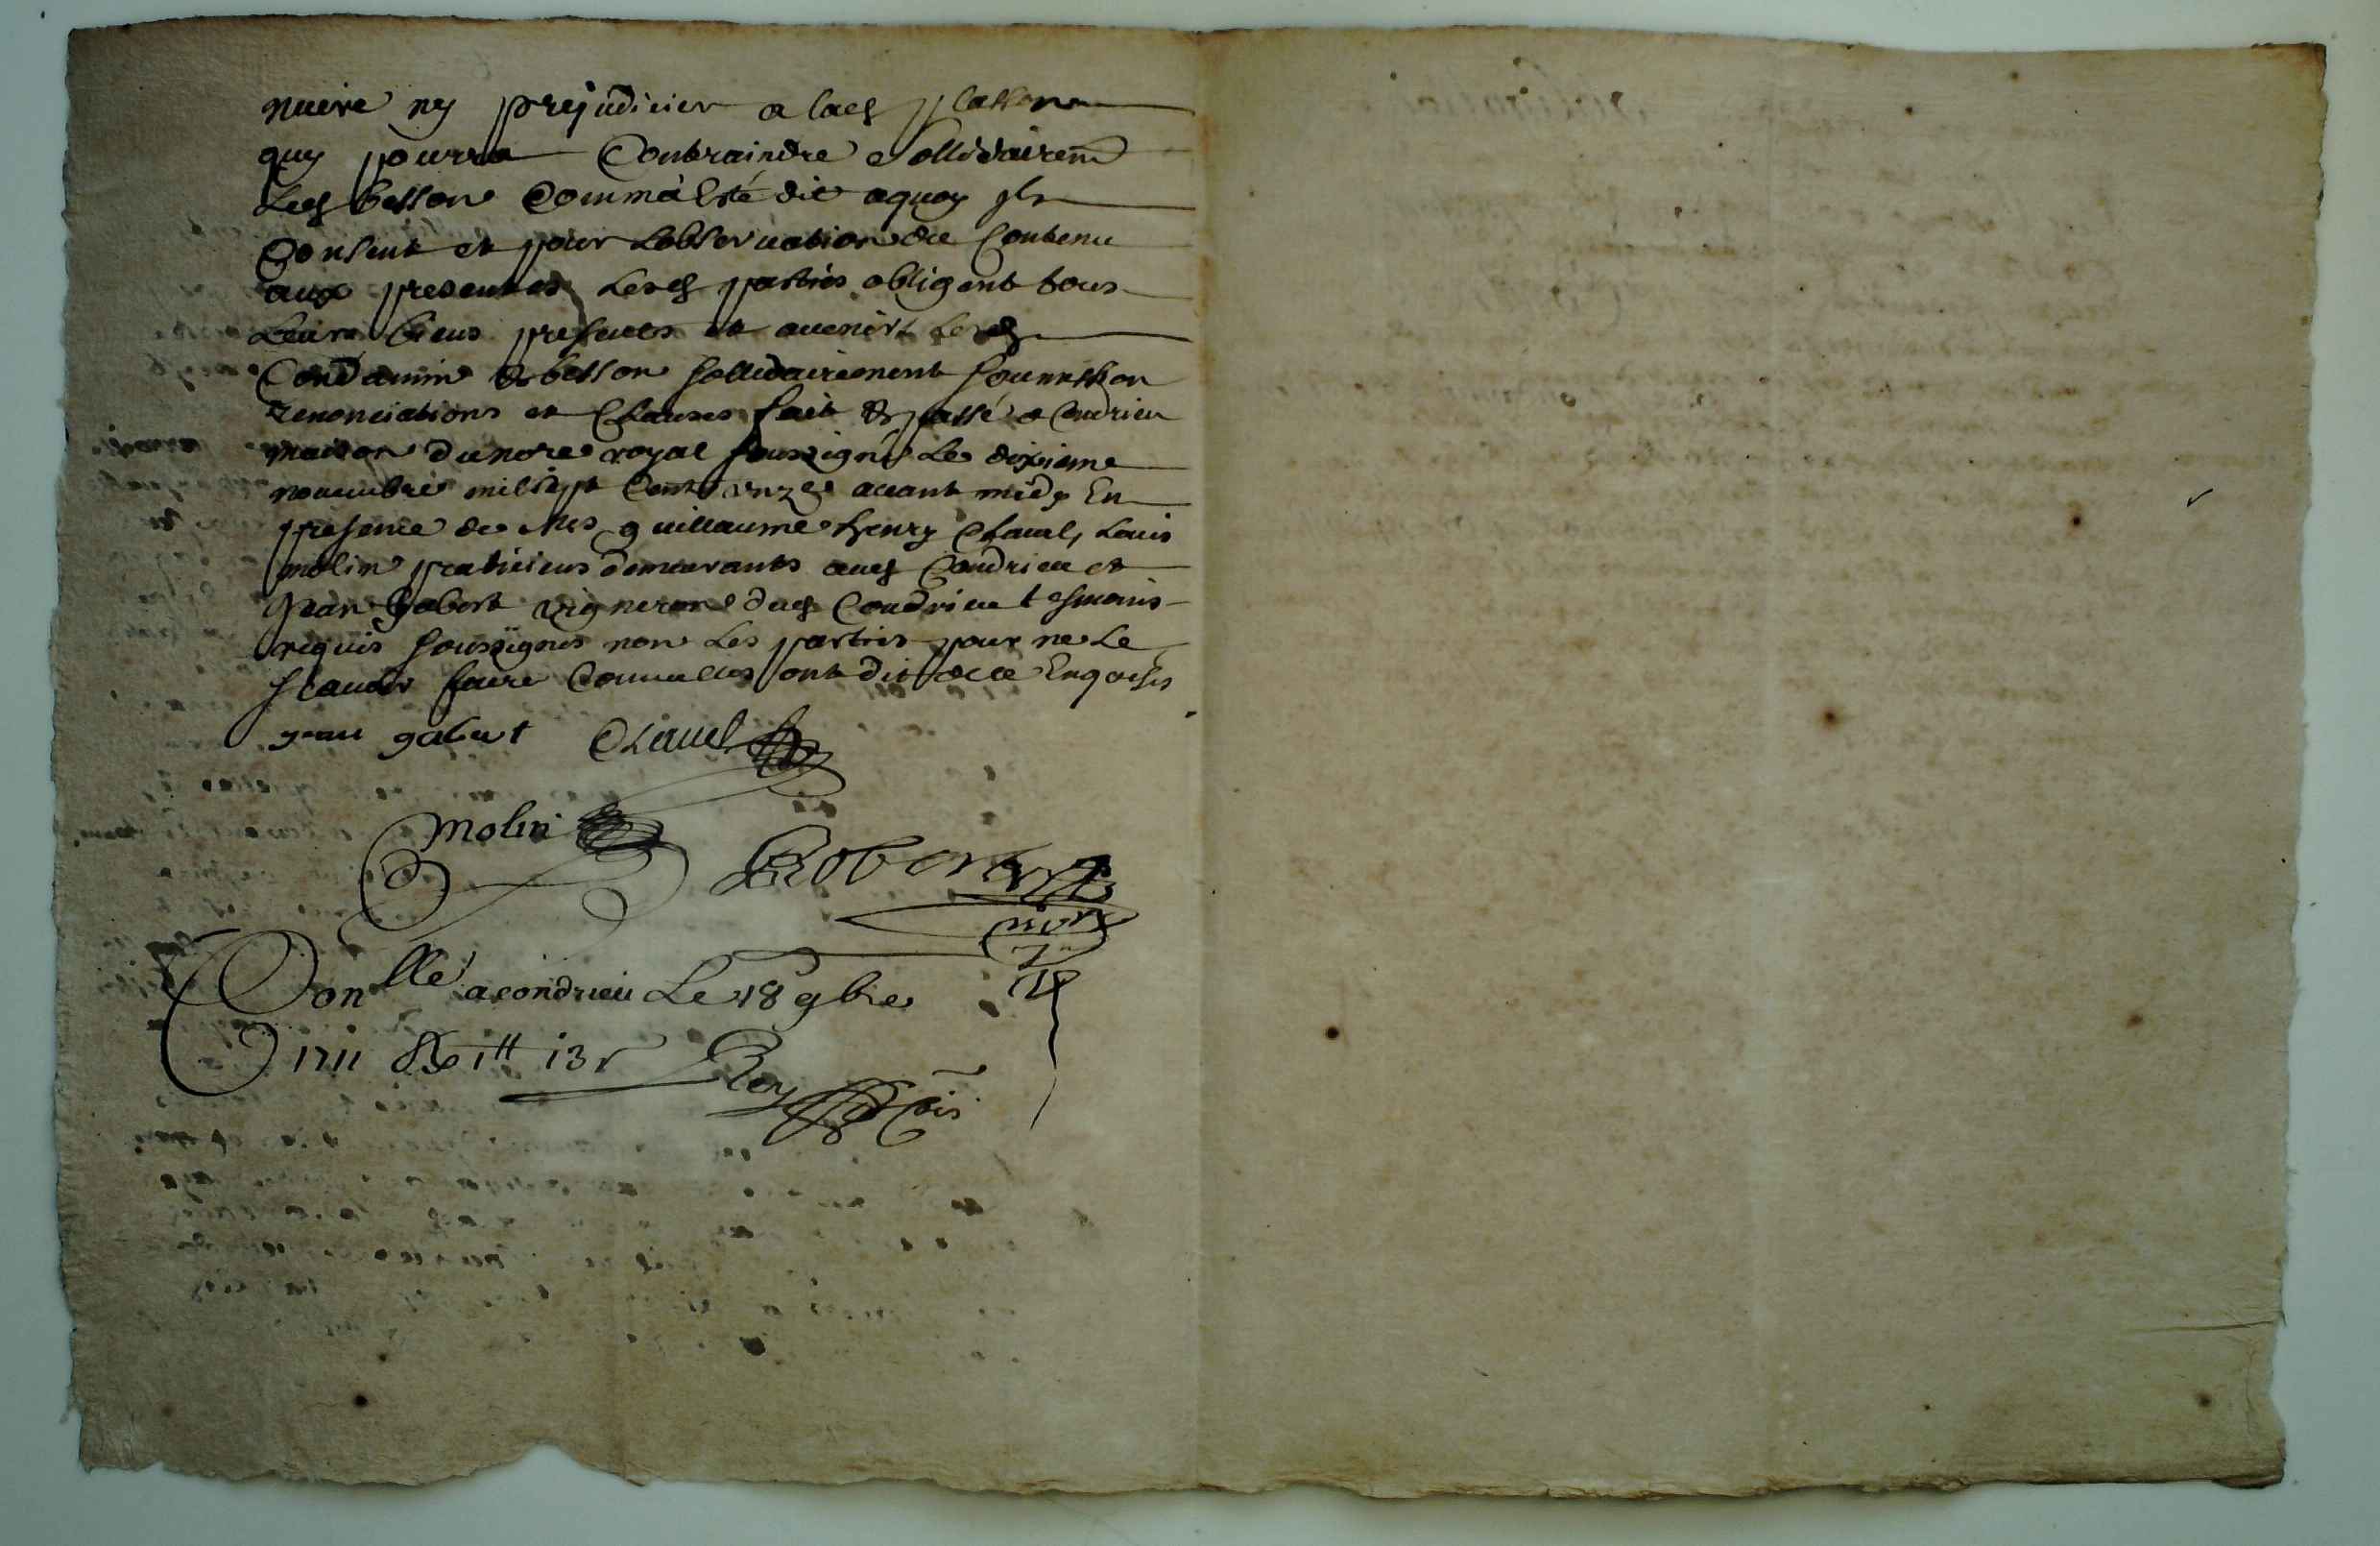 nuire ny prejudicier a lad
quy pourra Contraindre sollidairem
Lesd besson Comm'a esté dit aquoy ils
Consent et pour Lobservation du Contenu
aux presentes Lesd parties obligent tous
Leurs biens presents et avenir Lesd
Condamin & besson sollidairement
renonciations et Clauses fait & passé a Condrieu
maison du nore royal soussigné Le dixieme
novembre mil sept Cent unze avant midy En
presence de Mes guillaume henry Chavel, Louis
molin praticiens demeurants aud Condrieu et
Jean gabert vigneron dud Condrieu tesmoins
requis soussignes non Les parties pour ne Le
scavoir faire Comm elles ont dit de ce Enquises
jean gabert Chavel
molin
Robert
nore
Con llé a condrieu Le 18 9bre
1711 Re 1tt 13s
Roy Cois